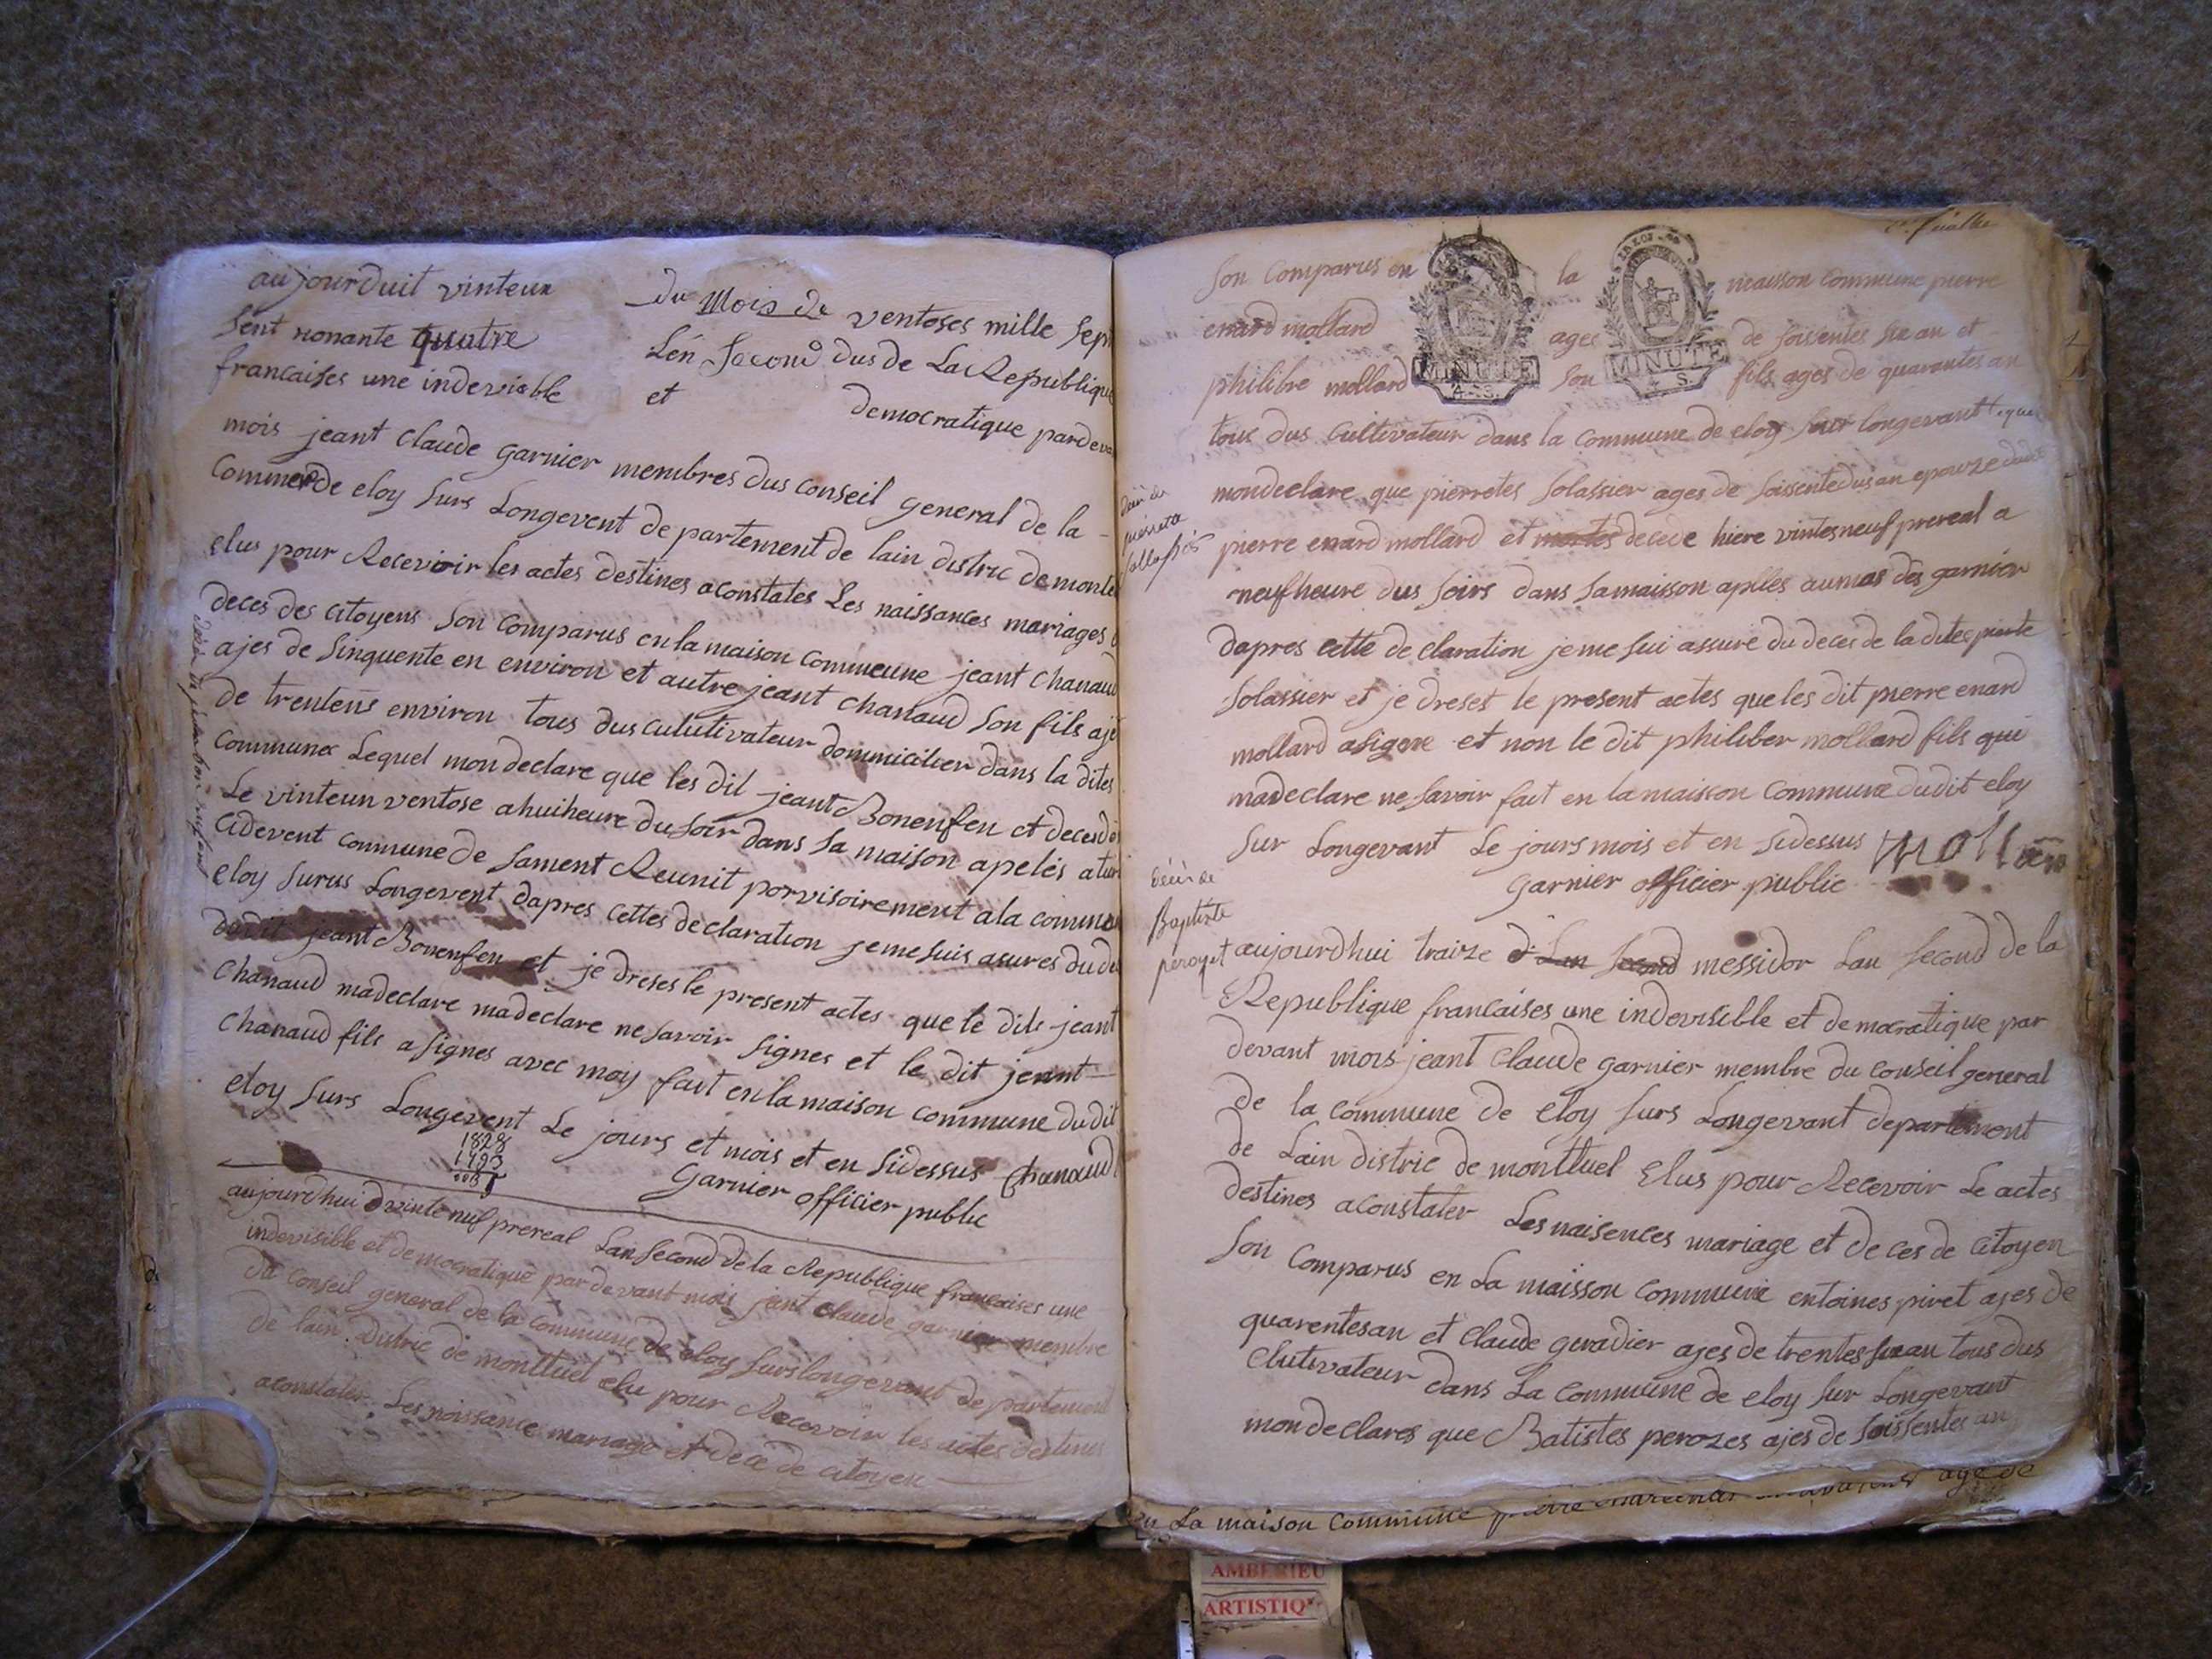 aujourduit vinteun du Mois de ventoses mille Sept
Sent nonante quatre Lén Second dus de La Republique
francaises une indevisble et democratique pardeva
mois jeant Claude garnier membres dus conseil general de la -
Commende eloy Surs Longevent de partement de lain distric de montl
elus pour Recevoir les actes destines aconstates Les naissances mariages
deces des citoyens Son Comparus en la maison commeune jeant Chanaud
ajes de Sinquente en environ et autre jeant chanaud Son fils aje
de trentens environ tous dus culutivateur dommicilier dans la dites
Communes Lequel mon declare que les dit jeant Bonenfen et decede
Le vinteun ventose ahuiheure du Soir dans Sa maison apeles atu
Cidevent commune de Sament Reunit porvisoirement ala commu
eloy Surus Longevent dapres cettes declaration jemesuis asures du de
dudit jeant Bonenfen et je dreses le present actes que le dits jeant
Chanaud madeclare madeclare ne Savoir Signes et le dit jeant
Chanaud fils a Signes avec moy fait en la maison commune du dit
eloy Surs Longevent Le jours et mois et en Sidessus Chanaud
1828
1793
garnier officier public
aujourdhui vinte neuf prereal Lan Second de la Republique francaises une
indevisible et democratique par devant mois jant Claude garnier membre
du Conseil general de la commune de eloy Surs longevant departement
de lain distric de montluel elu pour Recevoir les actes destines
aconstater Les noissance mariage et dece de citoyen
Son Comparus en la maisson Commune pierre
MINUTE
MINUTE
enard mollard ages de Soissentes Six an et
philibre mollard Son fils ages de quarantes an
tous dus Cultivateur dans la Commune de eloy Sur longevant
mondeclare que pierretes Solassier ages de Soissentedus an epouze
pierre enard mollard et mortes decede hiere vintesneuf prereal a
neuf heure dus Soirs dans Samaisson aplles aumas des garnier
dapres cette de claration jeme Sui assure du deces de la dites
Solassier et je dreset le present actes que les dit pierre enard
mollard asigne et non le dit philiber mollard fils qui
madeclare ne Savoir fait en lamaisson Commune dudit eloy
Sur Longevant Le jours mois et en Sidessus mollar
garnier officier public
décès de
Baptiste
peroyet
aujourdhui traize d Lan Second messidor Lan Second de la
Republique francaises une indevisible et democratique par
devant mois jeant Claude garnier membre du Conseil general
de la commune de eloy Surs Longevant departement
de Lain distric de montluel Elus pour Recevoir Le actes
destines aconstater Les naisences mariage et de ces de Citoyen
Son Comparus en La maisson Commune entoines pivet ajes de
quarentesan et Claude geradier ajes de trentes Sixan tous dus
Clutivateur dans La Commune de eloy Sur Longevant
mondeclares que Batistes perozes ajes de Soissentes an
La maison Commune
AMBERIEU
ARTISTIQ